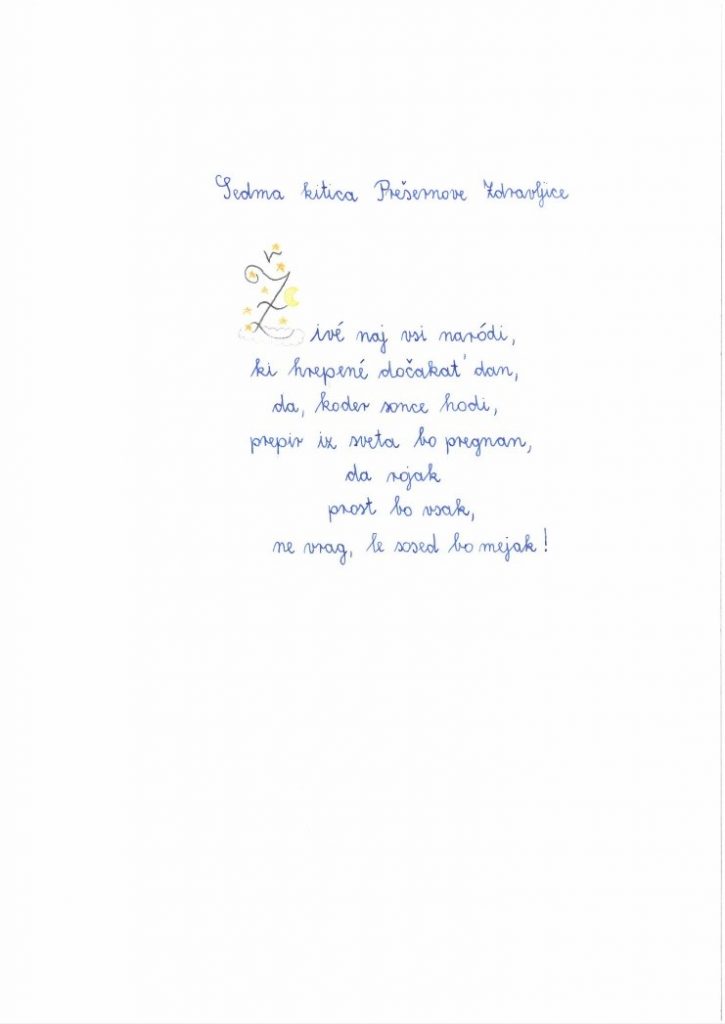 Sedma kitica Prešernove Zdravljice
Živé naj vsi naródi,
ki hrepené dočakat' dan,
da, koder sonce hodi,
prepir iz sveta bo pregnan,
da rojak
prost bo vsak,
ne vrag, le sosed bo mejak!